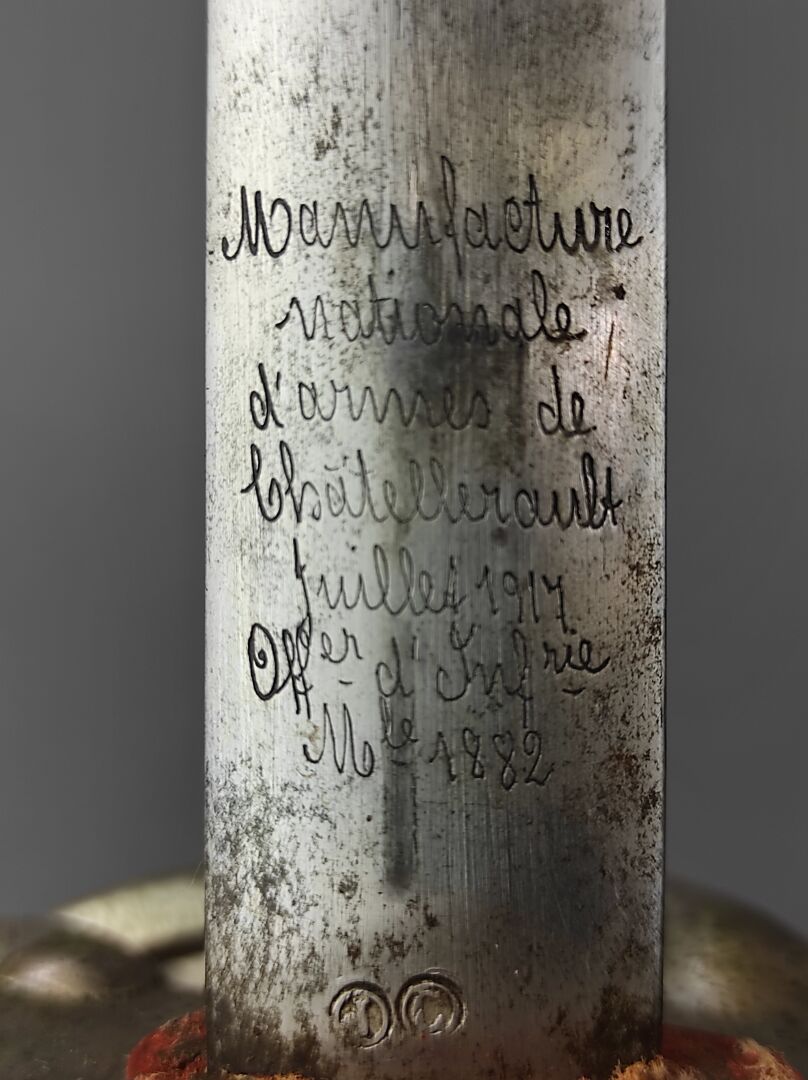 Manufacture
nationale
d'armes de
Châtellerault
Juillet 1917
Offer d'Infrie
Mle 1882
D C